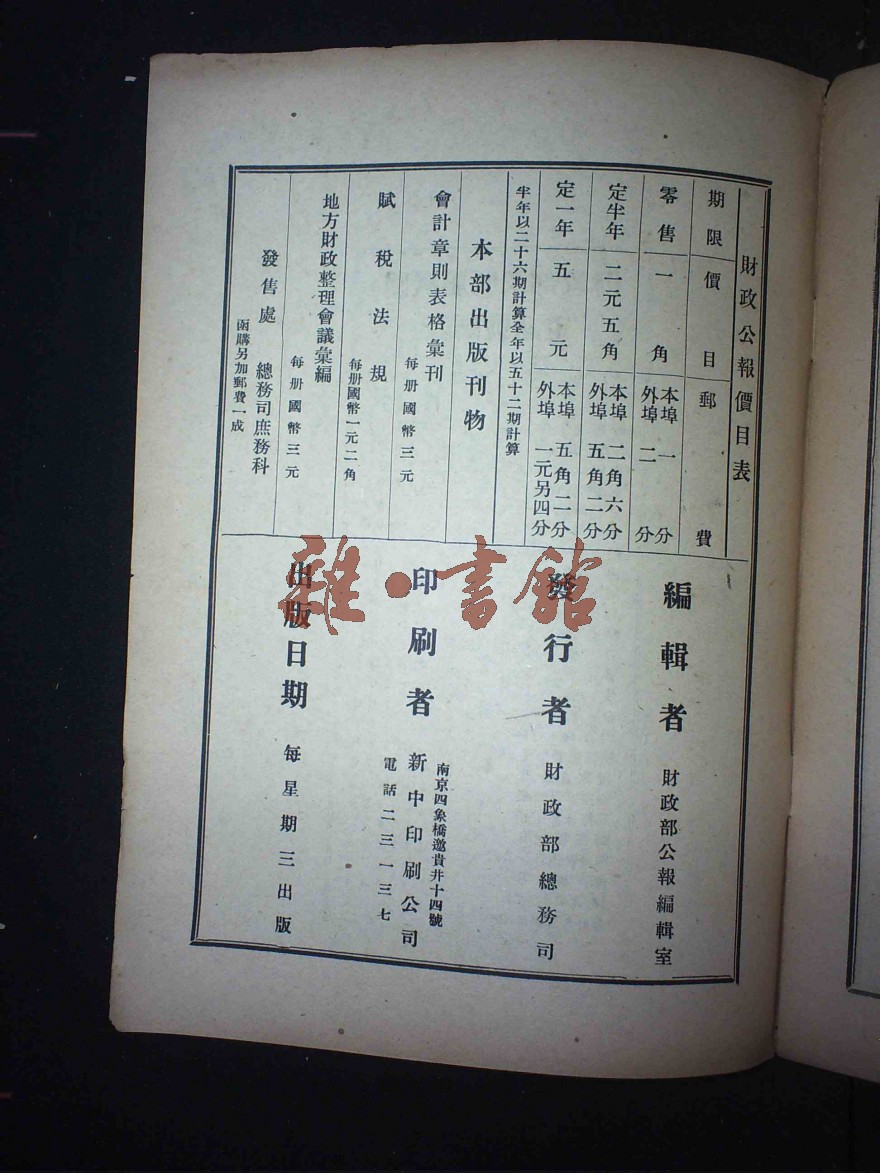 財政公報價目表
期限 價目 郵費
零售 一角 本埠 一分 外埠 二分
定半年 二元五角 本埠 二角六分 外埠 五角二分
定一年 五元 本埠 五角二分 外埠 一元另四分
半年以二十六期計算全年以五十二期計算
本部出版刊物
會計章則表格彙刊 每册國幣三元
賦稅法規 每册國幣一元二角
地方財政整理會議彙編 每册國幣三元
發售處 總務司庶務科
函購另加郵費一成
編輯者 財政部公報編輯室
發行者 財政部總務司
印刷者 新中印刷公司
南京四象橋邀貴井十四號
電話二三一三七
出版日期 每星期三出版
雜·書館